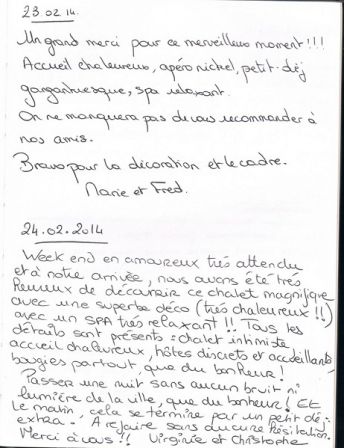 23.02.14.
Un grand merci pour ce merveilleux moment!!!
Accueil chaleureux, apéro nickel, petit-dej
gargantuesque, spa relaxant.
On ne manquera pas de vous recommander à
nos amis.
Bravo pour la décoration et le cadre.
Marie et Fred.
24.02.2014
Week end en amoureux très attendu
et à notre arrivée, nous avons été très
heureux de découvrir ce chalet magnifique
avec une superbe déco (très chaleureux!!)
avec un SPA très relaxant!! Tous les
détails sont présents: chalet intimiste
accueil chaleureux, hôtes discrets et accueillants,
bougies partout, que du bonheur!
Passer une nuit sans aucun bruit ni
lumière de la ville, que du bonheur! Et
le matin, cela se termine par un petit déj
extra. A refaire sans aucune hésitation.
Merci à vous!! Virginie et Christophe